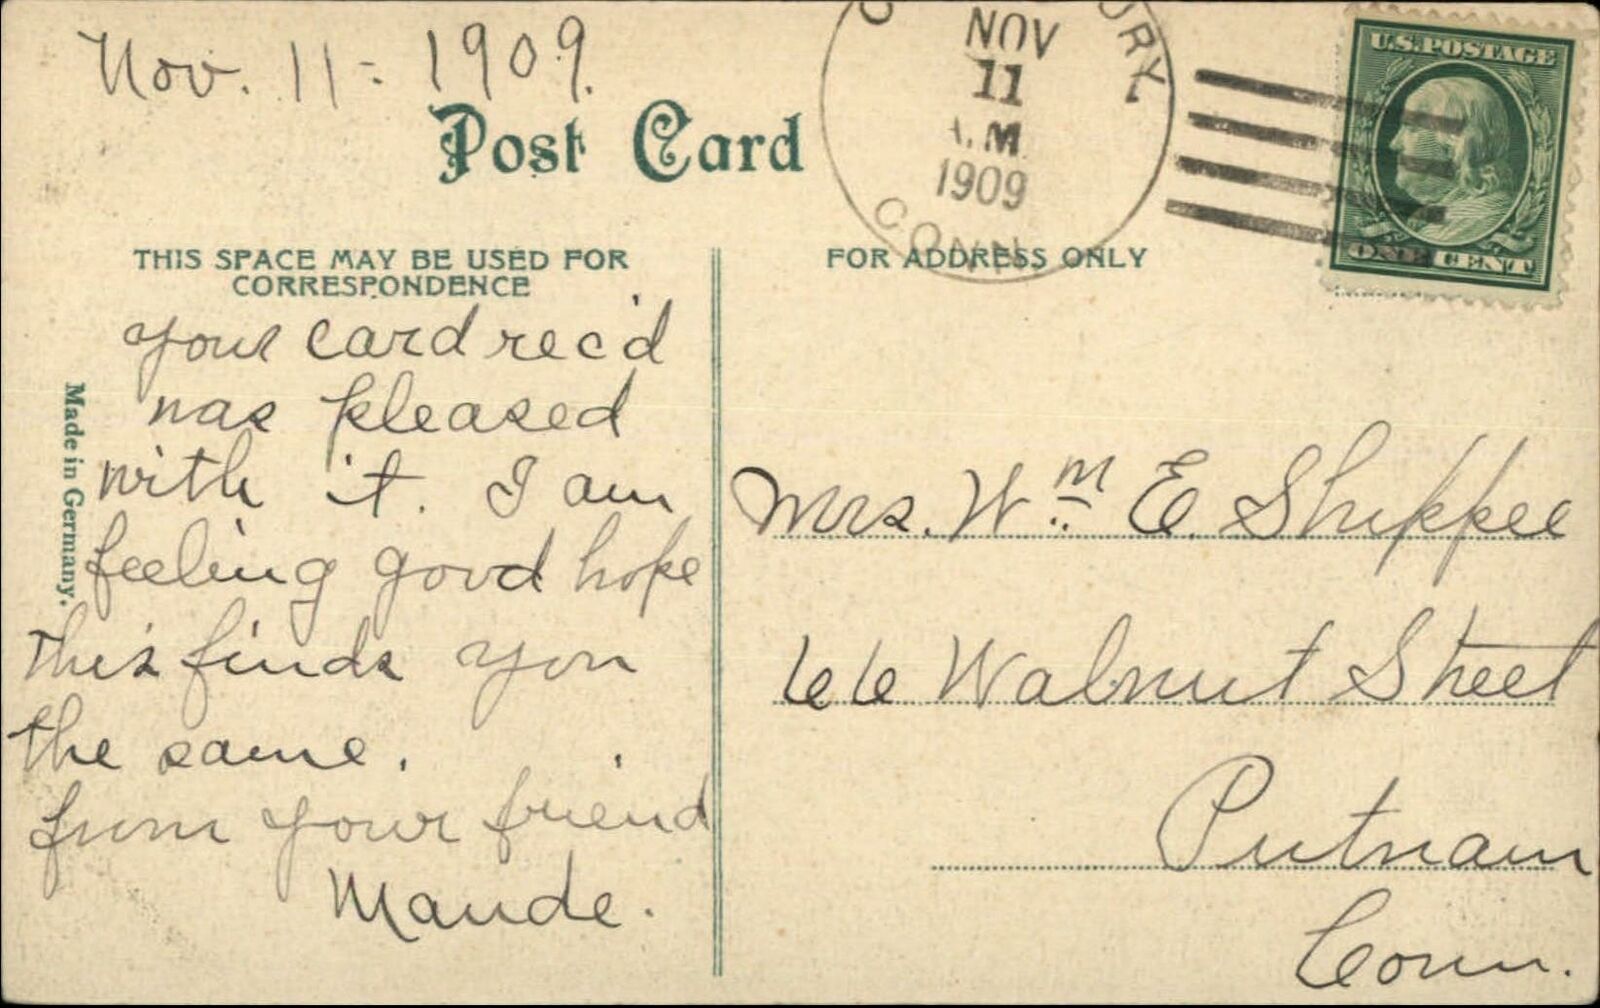 Nov. 11 - 1909.
Post Card
NOV
11
.M
1909
CONN
U.S. POSTAGE
ONE CENT
THIS SPACE MAY BE USED FOR
CORRESPONDENCE
FOR ADDRESS ONLY
Made in Germany.
your card rec'd
was pleased
with it. I am
feeling good hope
this finds you
the same.
from your friend
Maude.
Mrs. Wm E. Shippee
66 Walnut Street
Putnam
Conn.